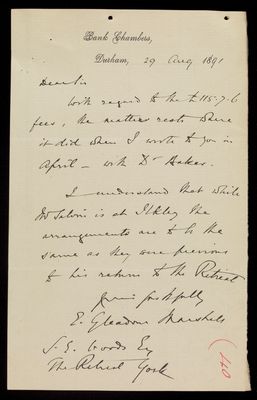 Bank Chambers,
Durham, 29 Aug 1891
Dear Sir
With regard to the £115-7-6
fees, the matter rests where
it did when I wrote to you in
April – with Dr Baker.
I understand that while
Mr is at Ilkley the
arrangements are to be the
same as they were previous
to his return to the Retreat
Yours faithfully
E. Gleadow Marshall
S. E. Woods Esq
The Retreat York